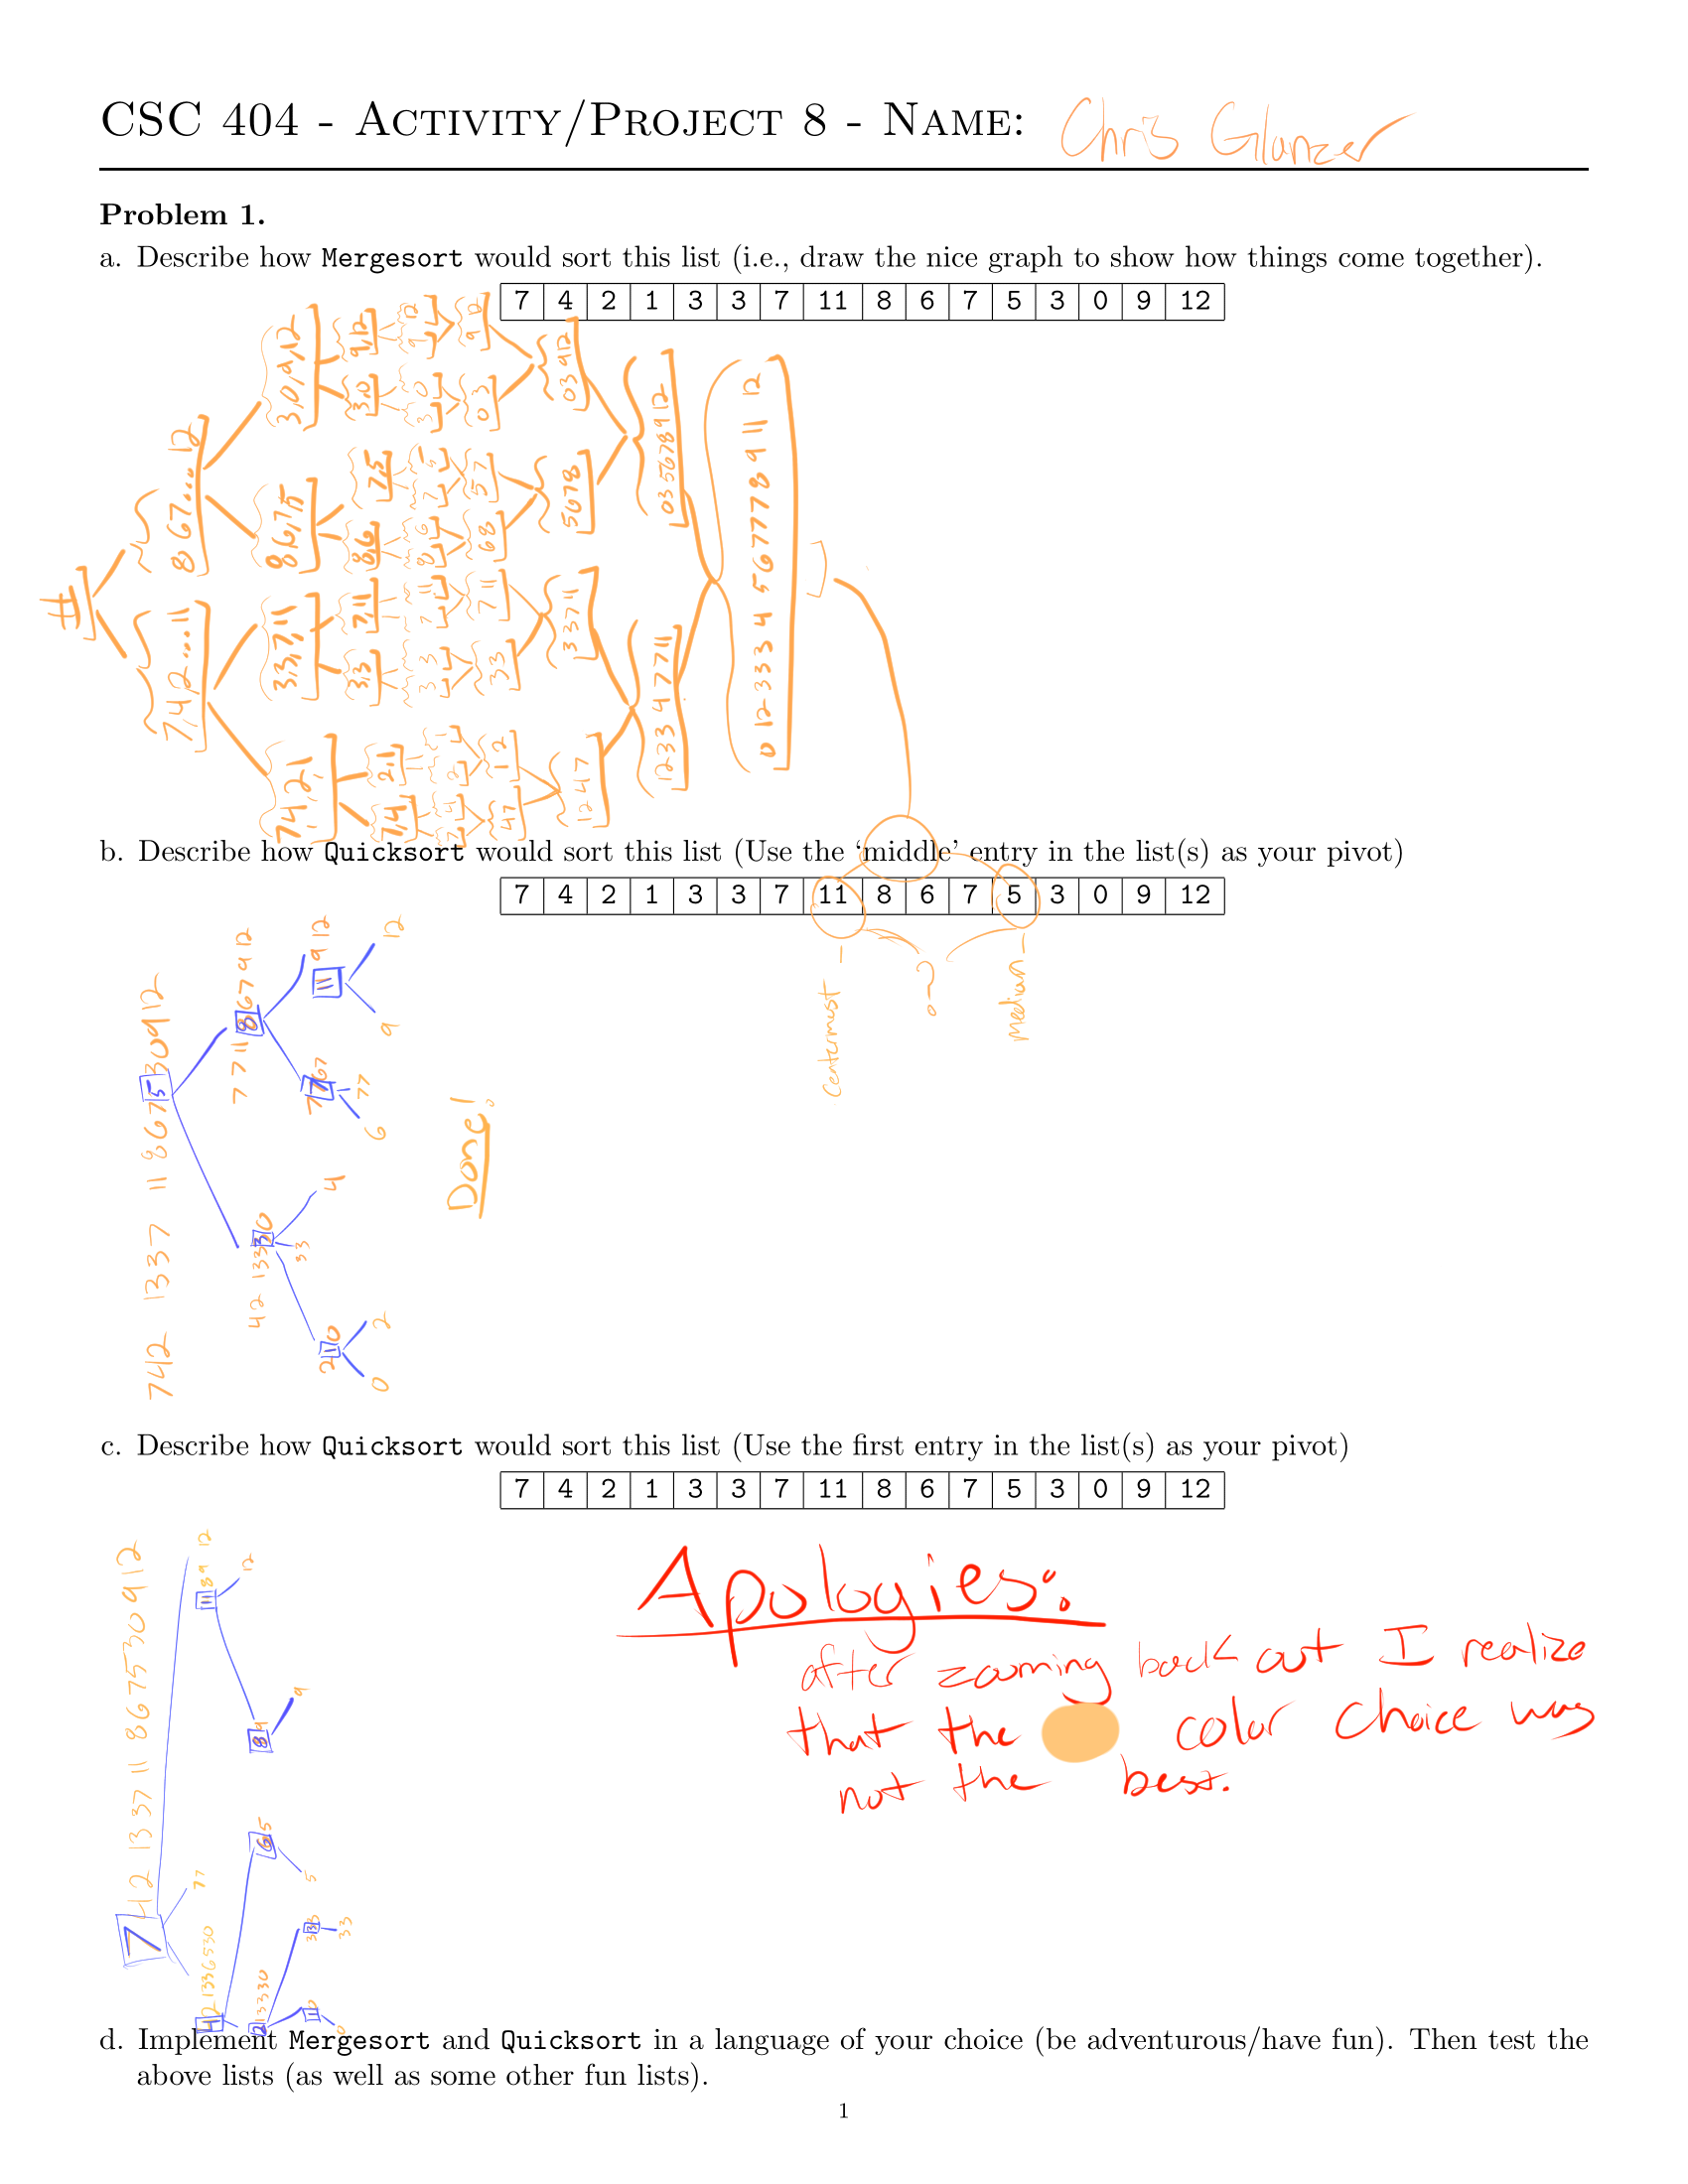 CSC 404 - Activity/Project 8 - Name: Chris Glanzer
Problem 1.
a. Describe how Mergesort would sort this list (i.e., draw the nice graph to show how things come together).
7 4 2 1 3 3 7 11 8 6 7 5 3 0 9 12
#
7,4,2...11 8 6 7...12
7,4,2,1 3,3,7,11 8,6,7,5 3,0,9,12
7,4 2,1 3,3 7,11 8,6 7,5 3,0 9,12
7 4 2 1 3 3 7 11 8 6 7 5 3 0 9 12
4 7 1 2 3 3 7 11 6 8 5 7 0 3 9 12
1 2 4 7 3 3 7 11 5 6 7 8 0 3 9 12
1 2 3 3 4 7 7 11 0 3 5 6 7 8 9 12
0 1 2 3 3 3 4 5 6 7 7 7 8 9 11 12
b. Describe how Quicksort would sort this list (Use the ‘middle’ entry in the list(s) as your pivot)
7 4 2 1 3 3 7 11 8 6 7 5 3 0 9 12
Centermost - ? Median -
7 4 2 1 3 3 7 11 8 6 7 5 3 0 9 12
4 2 1 3 3 3 0 7 7 11 8 6 7 9 12
2 1 0 3 3 4 7 7 6 7 11 9 12
0 2 6 7 7 9 12
Done!
c. Describe how Quicksort would sort this list (Use the first entry in the list(s) as your pivot)
7 4 2 1 3 3 7 11 8 6 7 5 3 0 9 12
7 4 2 1 3 3 7 11 8 6 7 5 3 0 9 12
4 2 1 3 3 6 5 3 0 7 7 11 8 9 12
2 1 3 3 3 0 6 5 8 9 12
1 0 3 3 3 5 9
0 3 3
Apologies:
after zooming back out I realize
that the color choice was
not the best.
d. Implement Mergesort and Quicksort in a language of your choice (be adventurous/have fun). Then test the
above lists (as well as some other fun lists).
1